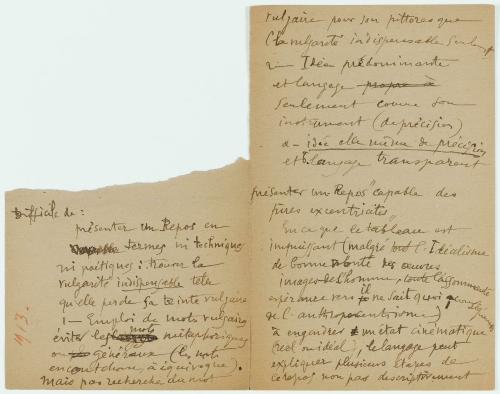 Difficile de :
présenter un Repos en
termes ni techniques
ni poétiques : trouver la
vulgarité indispensable telle
qu'elle perde sa teinte vulgaire
1 — Emploi de mots vulgaires
éviter les mots métaphoriques
ou généraux (les mots
en caoutchouc, à équivoque).
Mais pas recherche du mot
1913.
vulgaire pour son pittoresque
(la vulgarité indispensable seulemt
2 — Idée prédominante
et langage propre à
seulement comme son
instrument (de précision)
a — idée elle même de précision
et langage transparent
présenter un Repos "capable des
pires excentricités"
En ce que le tableau est
impuissant (malgré tout l'idéalisme
de bonne volonté des œuvres
images de l'homme, toute la
espérance vers il ne sait quoi
de l'anthropocentrisme)
à engendrer un état cinématique
(réel ou idéal), le langage peut
expliquer plusieurs étapes de
ce repos non pas descriptivement